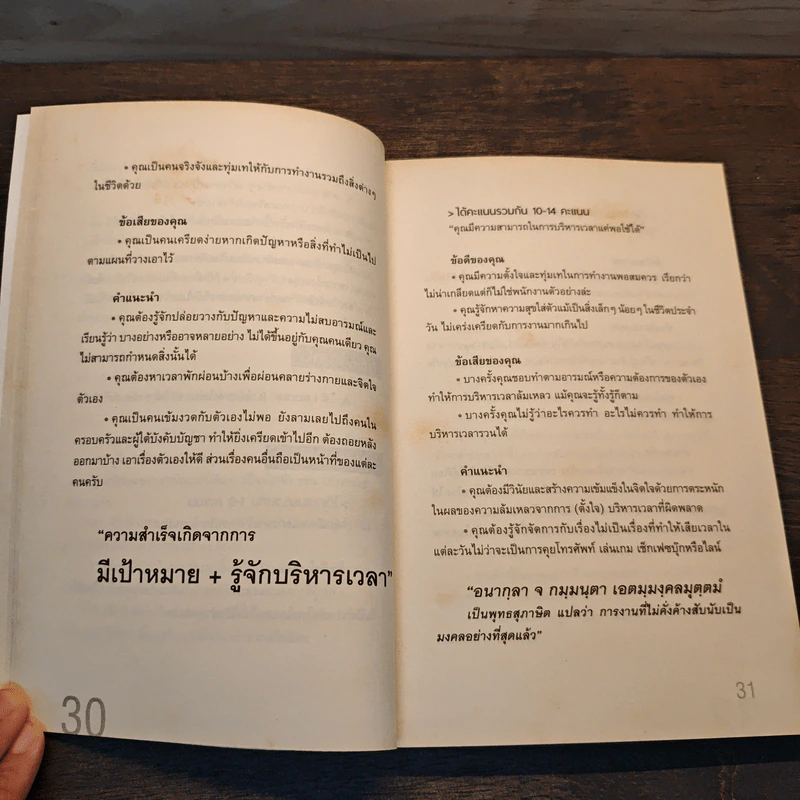 • คุณเป็นคนจริงจังและทุ่มเทให้กับการทำงานรวมถึงสิ่งต่างๆ
ในชีวิตด้วย
ข้อเสียของคุณ
• คุณเป็นคนเครียดง่ายหากเกิดปัญหาหรือสิ่งที่ทำไม่เป็นไป
ตามแผนที่วางเอาไว้
คำแนะนำ
• คุณต้องรู้จักปล่อยวางกับปัญหาและความไม่สบอารมณ์และ
เรียนรู้ว่า บางอย่างหรืออาจหลายอย่าง ไม่ได้ขึ้นอยู่กับคุณคนเดียว คุณ
ไม่สามารถกำหนดสิ่งนั้นได้
• คุณต้องหาเวลาพักผ่อนบ้างเพื่อผ่อนคลายร่างกายและจิตใจ
ตัวเอง
• คุณเป็นคนเข้มงวดกับตัวเองไม่พอ ยังลามเลยไปถึงคนใน
ครอบครัวและผู้ใต้บังคับบัญชา ทำให้ยิ่งเครียดเข้าไปอีก ต้องถอยหลัง
ออกมาบ้าง เอาเรื่องตัวเองให้ดี ส่วนเรื่องคนอื่นถือเป็นหน้าที่ของแต่ละ
คนครับ
"ความสำเร็จเกิดจากการ
มีเป้าหมาย + รู้จักบริหารเวลา"
30
> ได้คะแนนรวมกัน 10-14 คะแนน
"คุณมีความสามารถในการบริหารเวลาแค่พอใช้ได้"
ข้อดีของคุณ
• คุณมีความตั้งใจและทุ่มเทในการทำงานพอสมควร เรียกว่า
ไม่น่าเกลียดแต่ก็ไม่ใช่พนักงานตัวอย่างล่ะ
• คุณรู้จักหาความสุขใส่ตัวแม้เป็นสิ่งเล็กๆ น้อยๆ ในชีวิตประจำ
วัน ไม่เคร่งเครียดกับการงานมากเกินไป
ข้อเสียของคุณ
• บางครั้งคุณชอบทำตามอารมณ์หรือความต้องการของตัวเอง
ทำให้การบริหารเวลาล้มเหลว แม้คุณจะรู้ทั้งรู้ก็ตาม
• บางครั้งคุณไม่รู้ว่าอะไรควรทำ อะไรไม่ควรทำ ทำให้การ
บริหารเวลารวนได้
คำแนะนำ
• คุณต้องมีวินัยและสร้างความเข้มแข็งในจิตใจด้วยการตระหนัก
ในผลของความล้มเหลวจากการ (ตั้งใจ) บริหารเวลาที่ผิดพลาด
• คุณต้องรู้จักจัดการกับเรื่องไม่เป็นเรื่องที่ทำให้เสียเวลาใน
แต่ละวันไม่ว่าจะเป็นการคุยโทรศัพท์ เล่นเกม เช็กเฟซบุ๊กหรือไลน์
"อนากุลา จ กมฺมนฺตา เอตมฺมงฺคลมุตฺตมํ
เป็นพุทธสุภาษิต แปลว่า การงานที่ไม่คั่งค้างสับนับเป็น
มงคลอย่างที่สุดแล้ว"
31